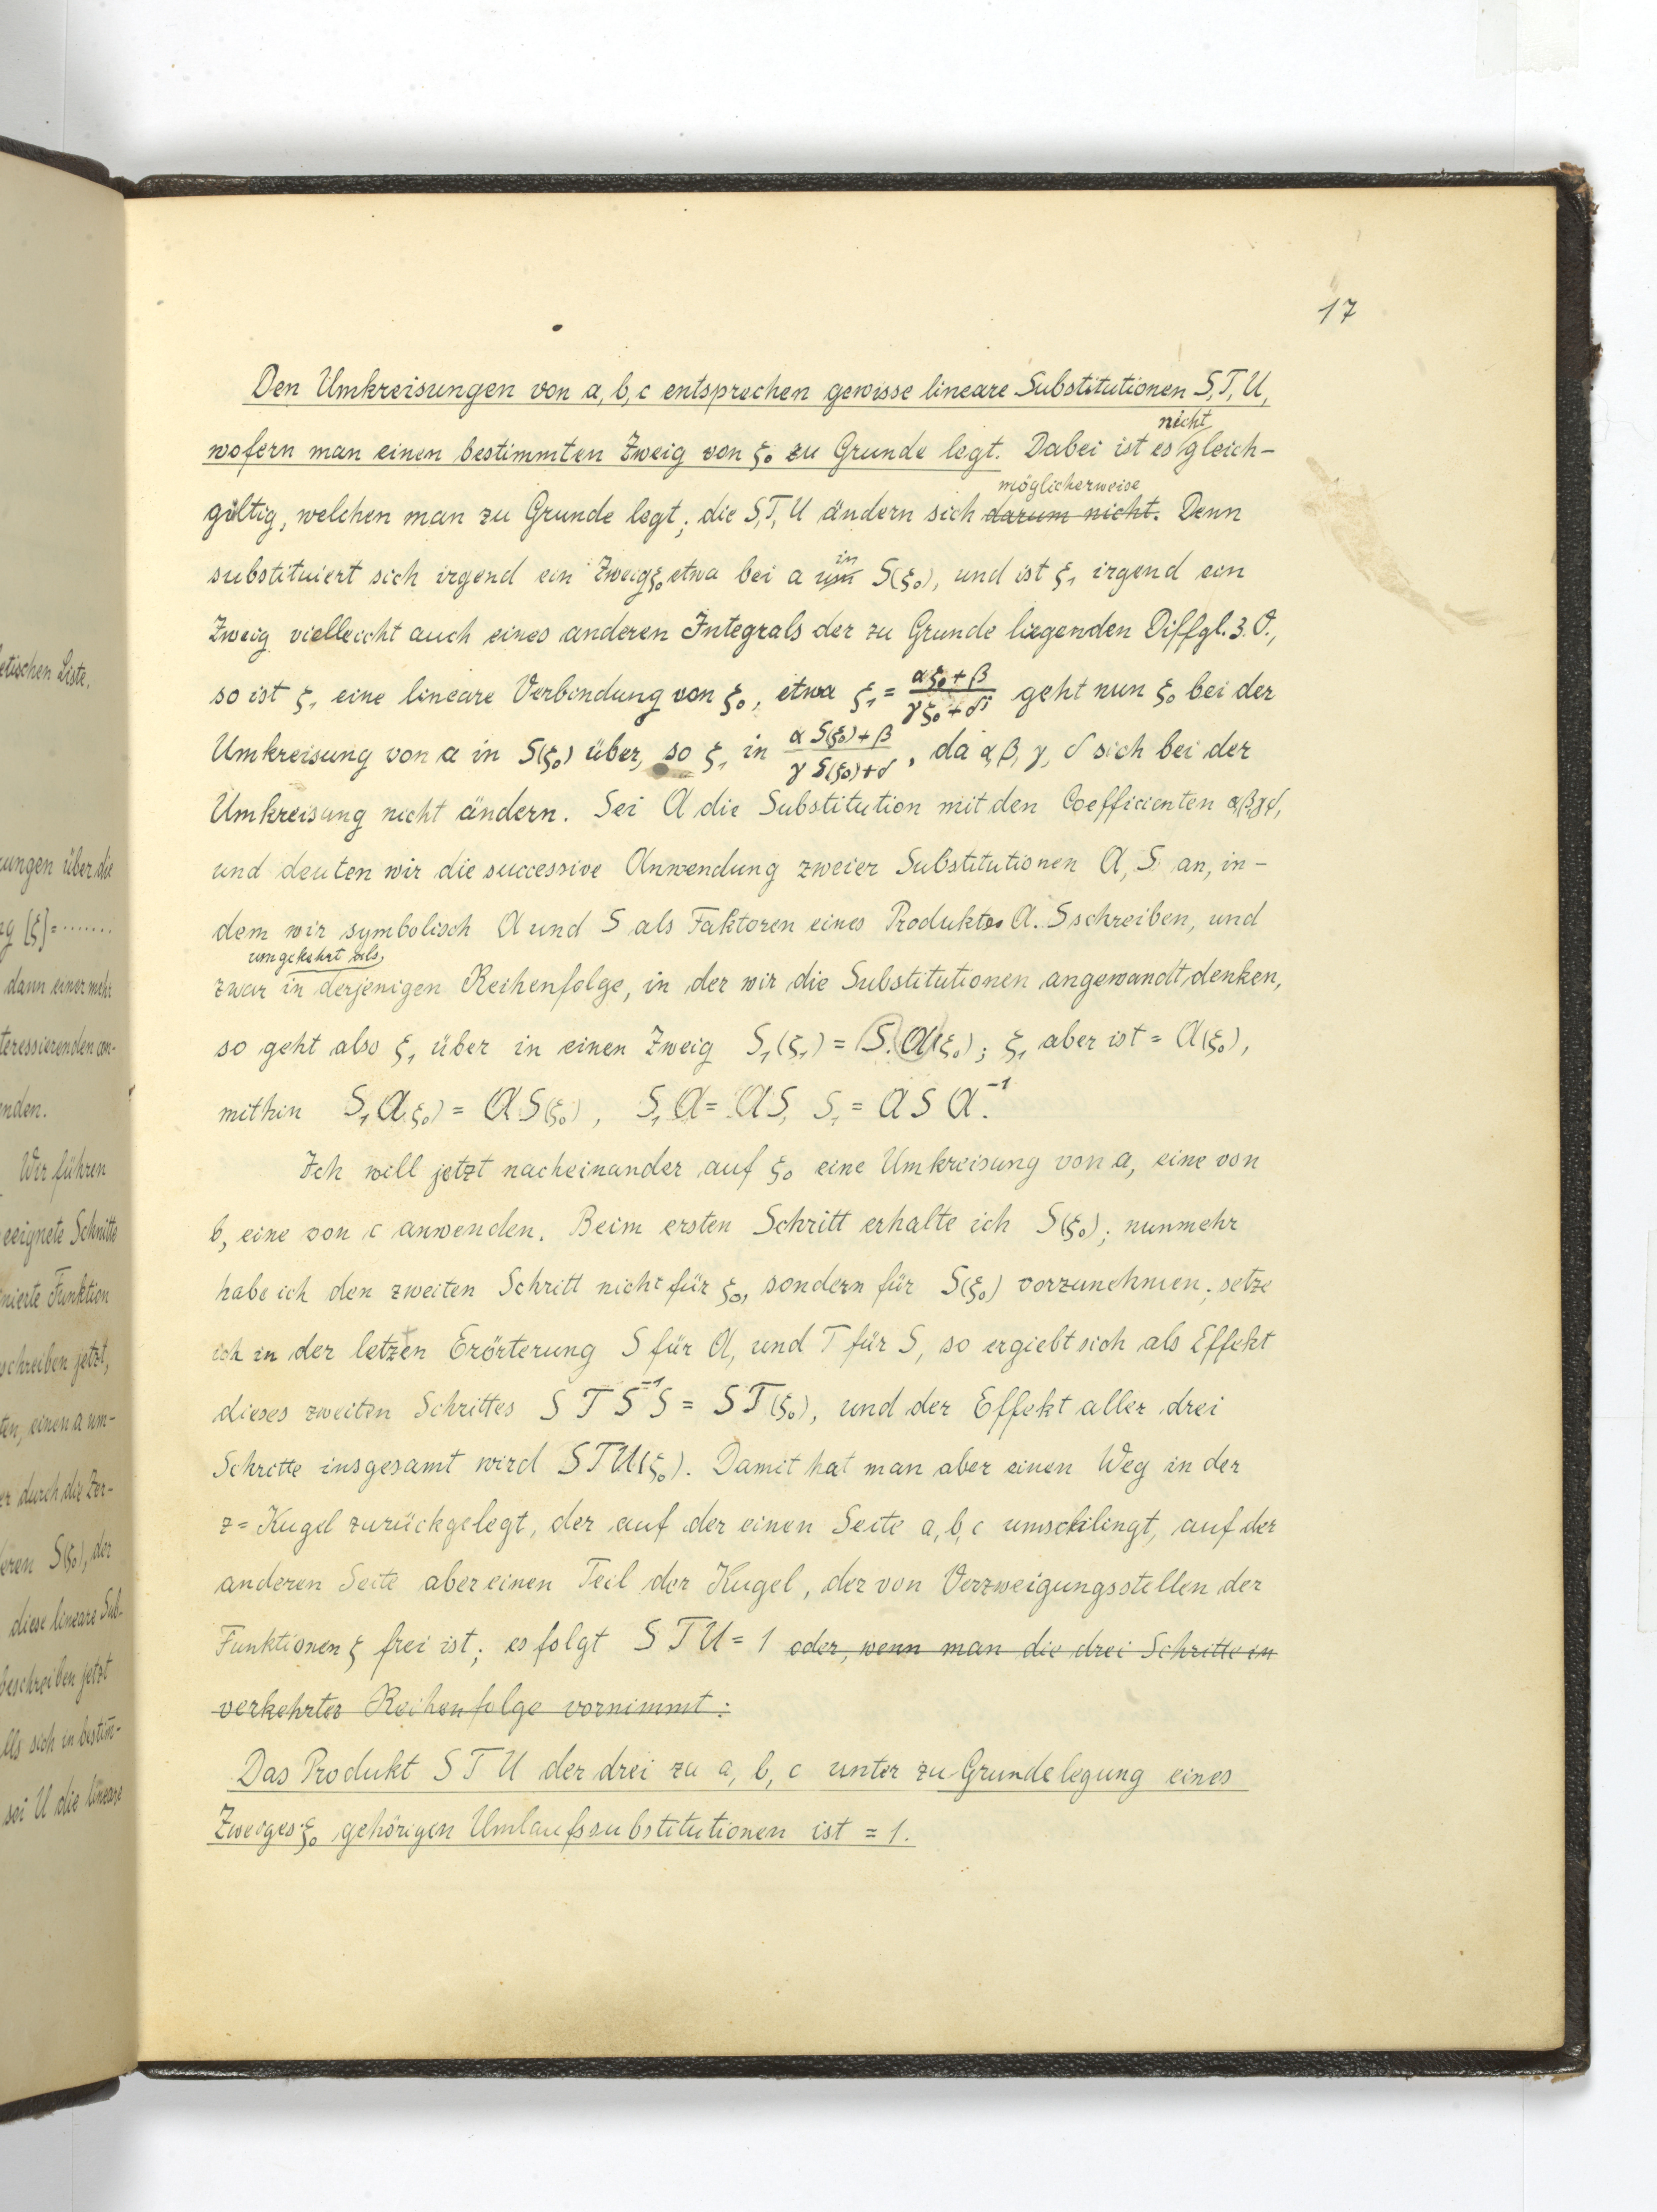 etischen Liste.
ungen über die
ng [ξ]=.......
dann einer mehr
teressierenden con-
enden.
Wir führen
eeignete Schnitte
nierte Funktion
schreiben jetzt,
ten, einen a um-
er durch die Zer-
eren S(ξ₀), der
diese lineare Sub-
beschreiben jetzt
lls sich in bestim-
sei U die lineare
17
Den Umkreisungen von a, b, c entsprechen gewisse lineare Substitutionen S, T, U,
nicht
wofern man einen bestimmten Zweig von ξ₀ zu Grunde legt. Dabei ist es gleich-
möglicherweise
gültig, welchen man zu Grunde legt; die S, T, U ändern sich darum nicht. Denn
in
substituiert sich irgend ein Zweig ξ₀ etwa bei a um S(ξ₀), und ist ξ₁ irgend ein
Zweig vielleicht auch eines anderen Integrals der zu Grunde liegenden Diffgl. 3. O.,
so ist ξ₁ eine lineare Verbindung von ξ₀, etwa ξ₁ = (αξ₀+β)/(γξ₀+δ) geht nun ξ₀ bei der
Umkreisung von a in S(ξ₀) über, so ξ₁ in (αS(ξ₀)+β)/(γS(ξ₀)+δ), da α, β, γ, δ sich bei der
Umkreisung nicht ändern. Sei A die Substitution mit den Coefficienten α, β, γ, δ,
und deuten wir die successive Anwendung zweier Substitutionen A, S an, in-
dem wir symbolisch A und S als Faktoren eines Produktes A. S schreiben, und
umgekehrt als
zwar in derjenigen Reihenfolge, in der wir die Substitutionen angewandt denken,
so geht also ξ₁ über in einen Zweig S₁(ξ₁) = S. A(ξ₀); ξ₁ aber ist = A(ξ₀),
mithin S₁A(ξ₀) = AS(ξ₀), S₁A = AS, S₁ = ASA⁻¹.
Ich will jetzt nacheinander auf ξ₀ eine Umkreisung von a, eine von
b, eine von c anwenden. Beim ersten Schritt erhalte ich S(ξ₀); nunmehr
habe ich den zweiten Schritt nicht für ξ₀, sondern für S(ξ₀) vorzunehmen; setze
ich in der letzten Erörterung S für A, und T für S, so ergiebt sich als Effekt
dieses zweiten Schrittes STS⁻¹S = ST(ξ₀), und der Effekt aller drei
Schritte insgesamt wird STU(ξ₀). Damit hat man aber einen Weg in der
z=Kugel zurückgelegt, der auf der einen Seite a, b, c umschlingt, auf der
anderen Seite aber einen Teil der Kugel, der von Verzweigungsstellen der
Funktionen ξ frei ist; es folgt STU = 1 oder, wenn man die drei Schritte in
verkehrter Reihenfolge vornimmt:
Das Produkt STU der drei zu a, b, c unter zu Grundelegung eines
Zweiges ξ₀ gehörigen Umlaufssubstitutionen ist = 1.